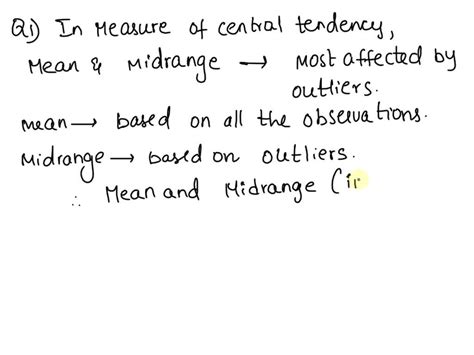 Q1) In Measure of central tendency,
Mean & Midrange → Most affected by
outliers.
Mean → based on all the observations.
Midrange → based on outliers.
∴ Mean and Midrange (i